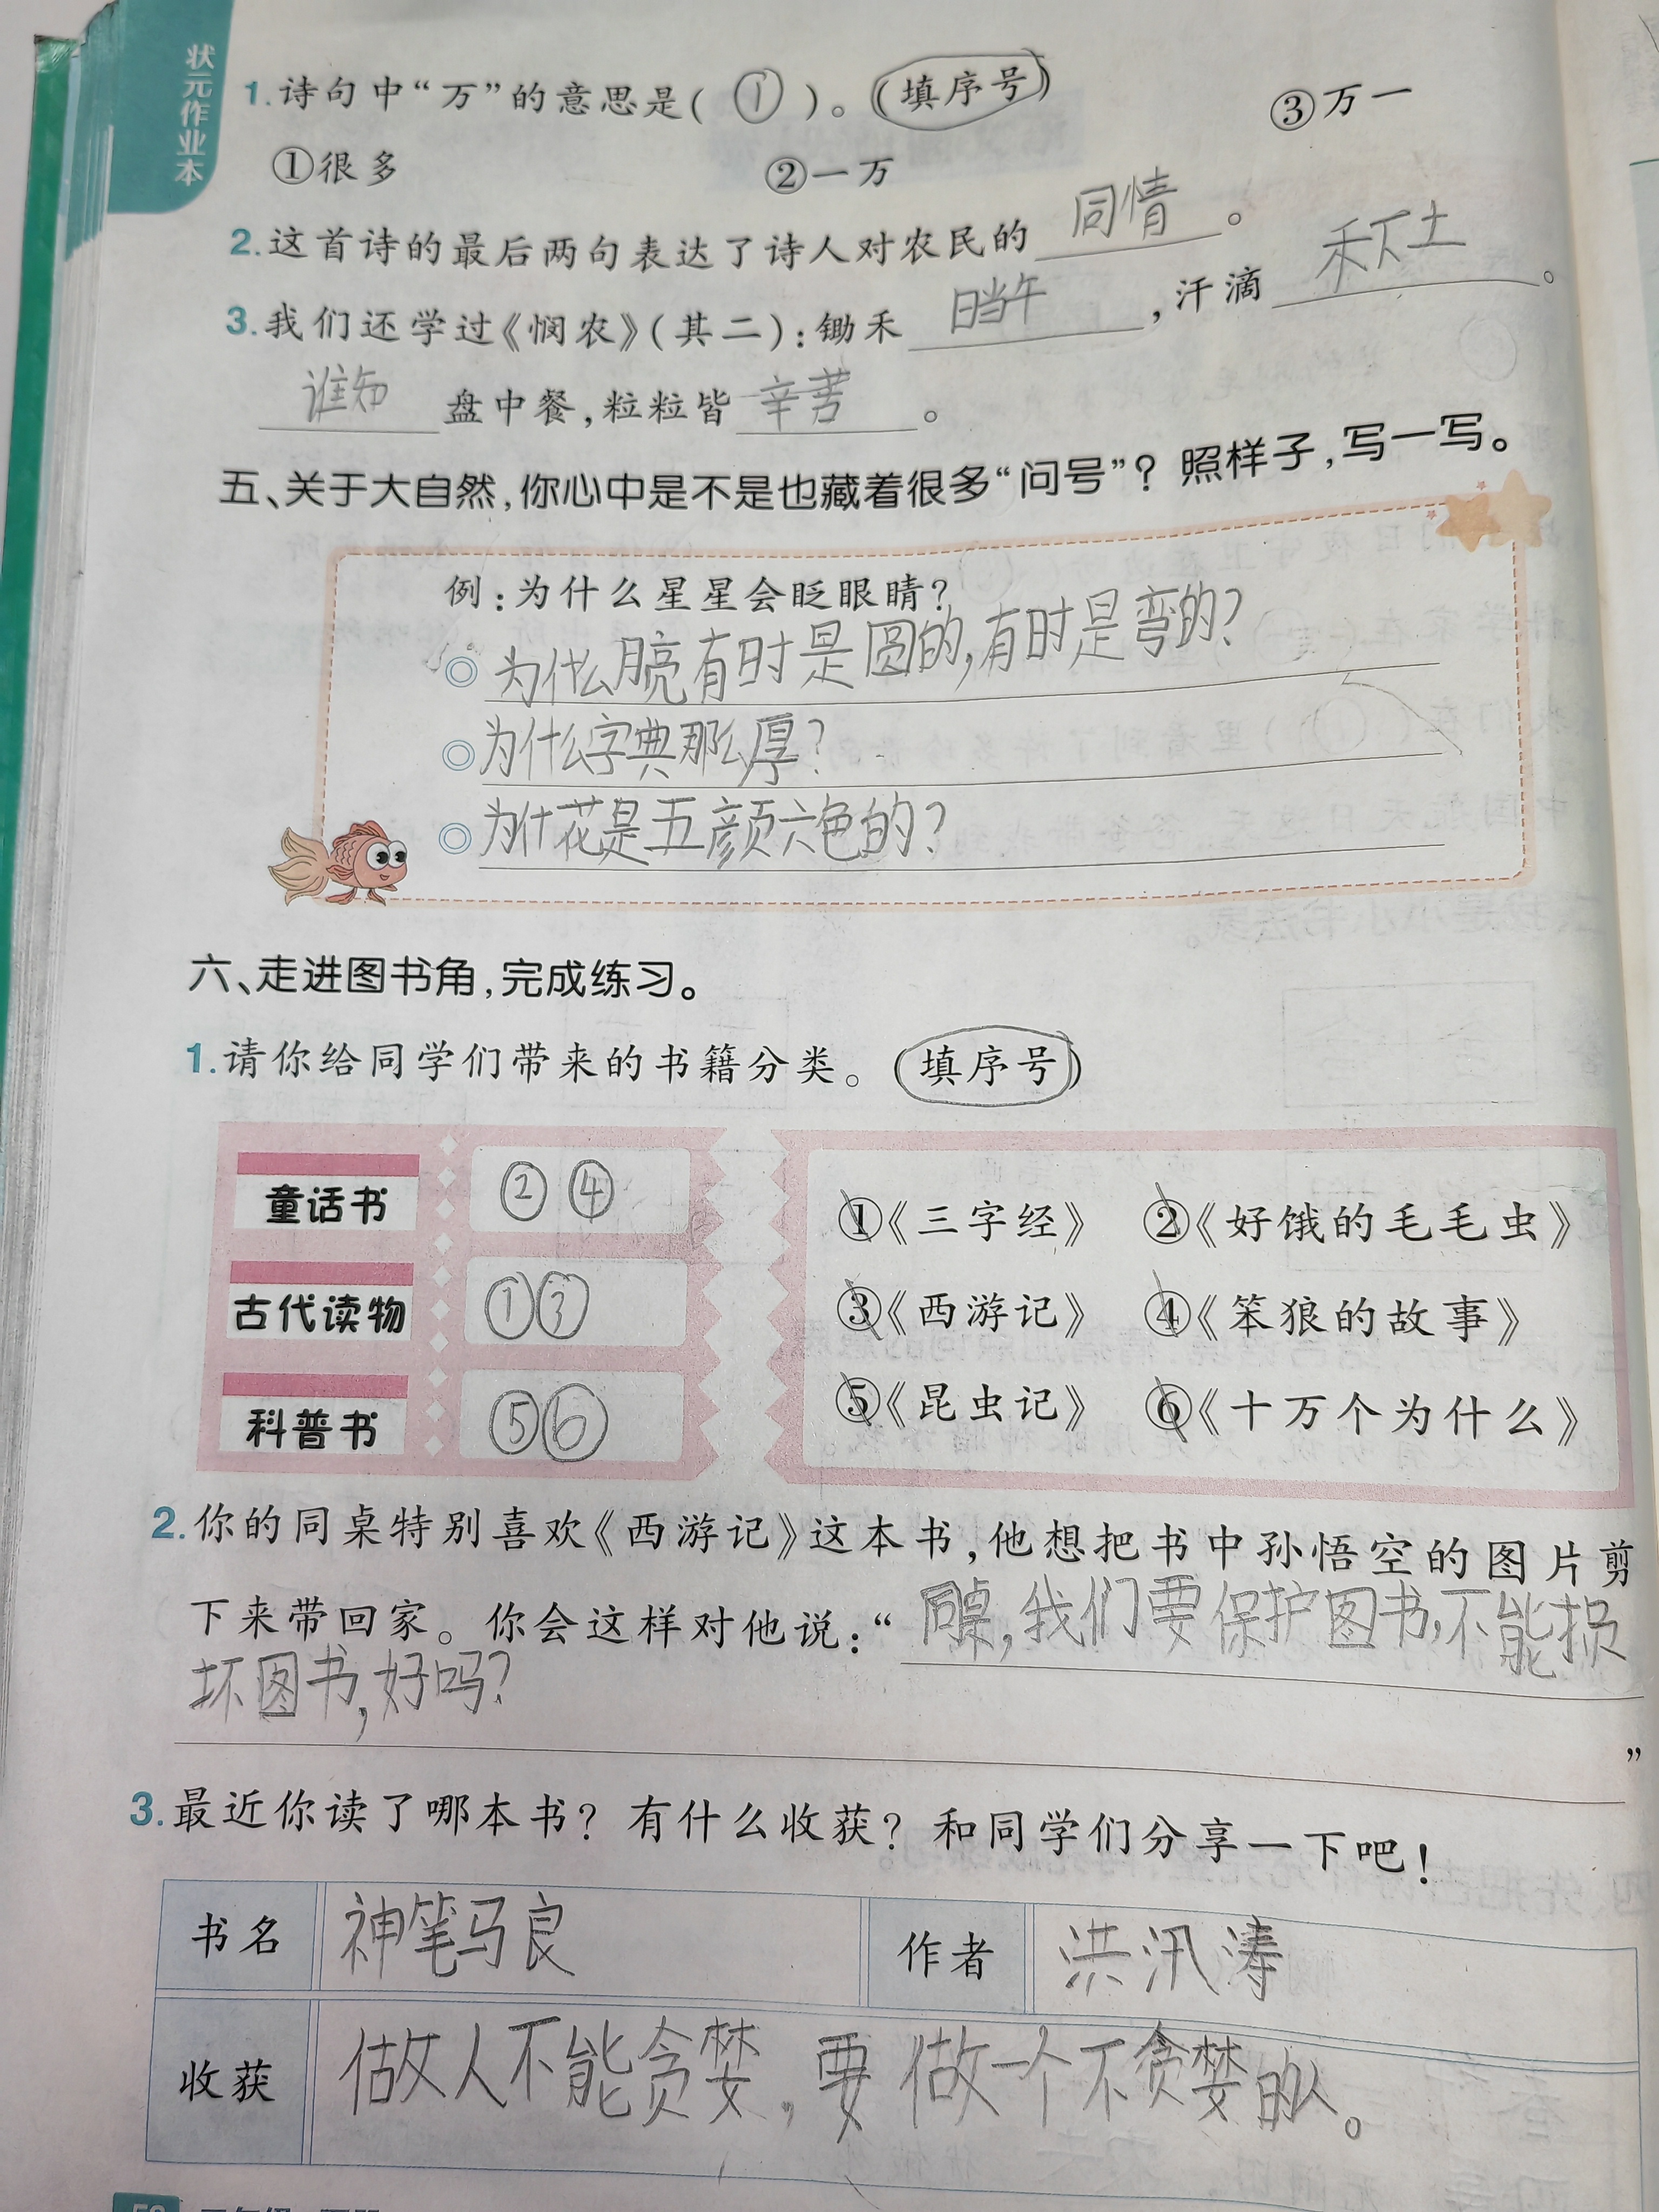 状元作业本
1.诗句中“万”的意思是( ① )。(填序号)
①很多 ②一万 ③万一
2.这首诗的最后两句表达了诗人对农民的 同情 。
3.我们还学过《悯农》(其二):锄禾 日当午 ,汗滴 禾下土 。
谁知 盘中餐,粒粒皆 辛苦 。
五、关于大自然,你心中是不是也藏着很多“问号”?照样子,写一写。
例:为什么星星会眨眼睛?
◎为什么月亮有时是圆的,有时是弯的?
◎为什么字典那么厚?
◎为什花是五颜六色的?
六、走进图书角,完成练习。
1.请你给同学们带来的书籍分类。(填序号)
童话书 ② ④
古代读物 ① ③
科普书 ⑤ ⑥
①《三字经》 ②《好饿的毛毛虫》
③《西游记》 ④《笨狼的故事》
⑤《昆虫记》 ⑥《十万个为什么》
2.你的同桌特别喜欢《西游记》这本书,他想把书中孙悟空的图片剪
下来带回家。你会这样对他说:“同桌,我们要保护图书,不能损
坏图书,好吗?”
3.最近你读了哪本书?有什么收获?和同学们分享一下吧!
书名 神笔马良 作者 洪汛涛
收获 做人不能贪婪,要做一个不贪婪的人。